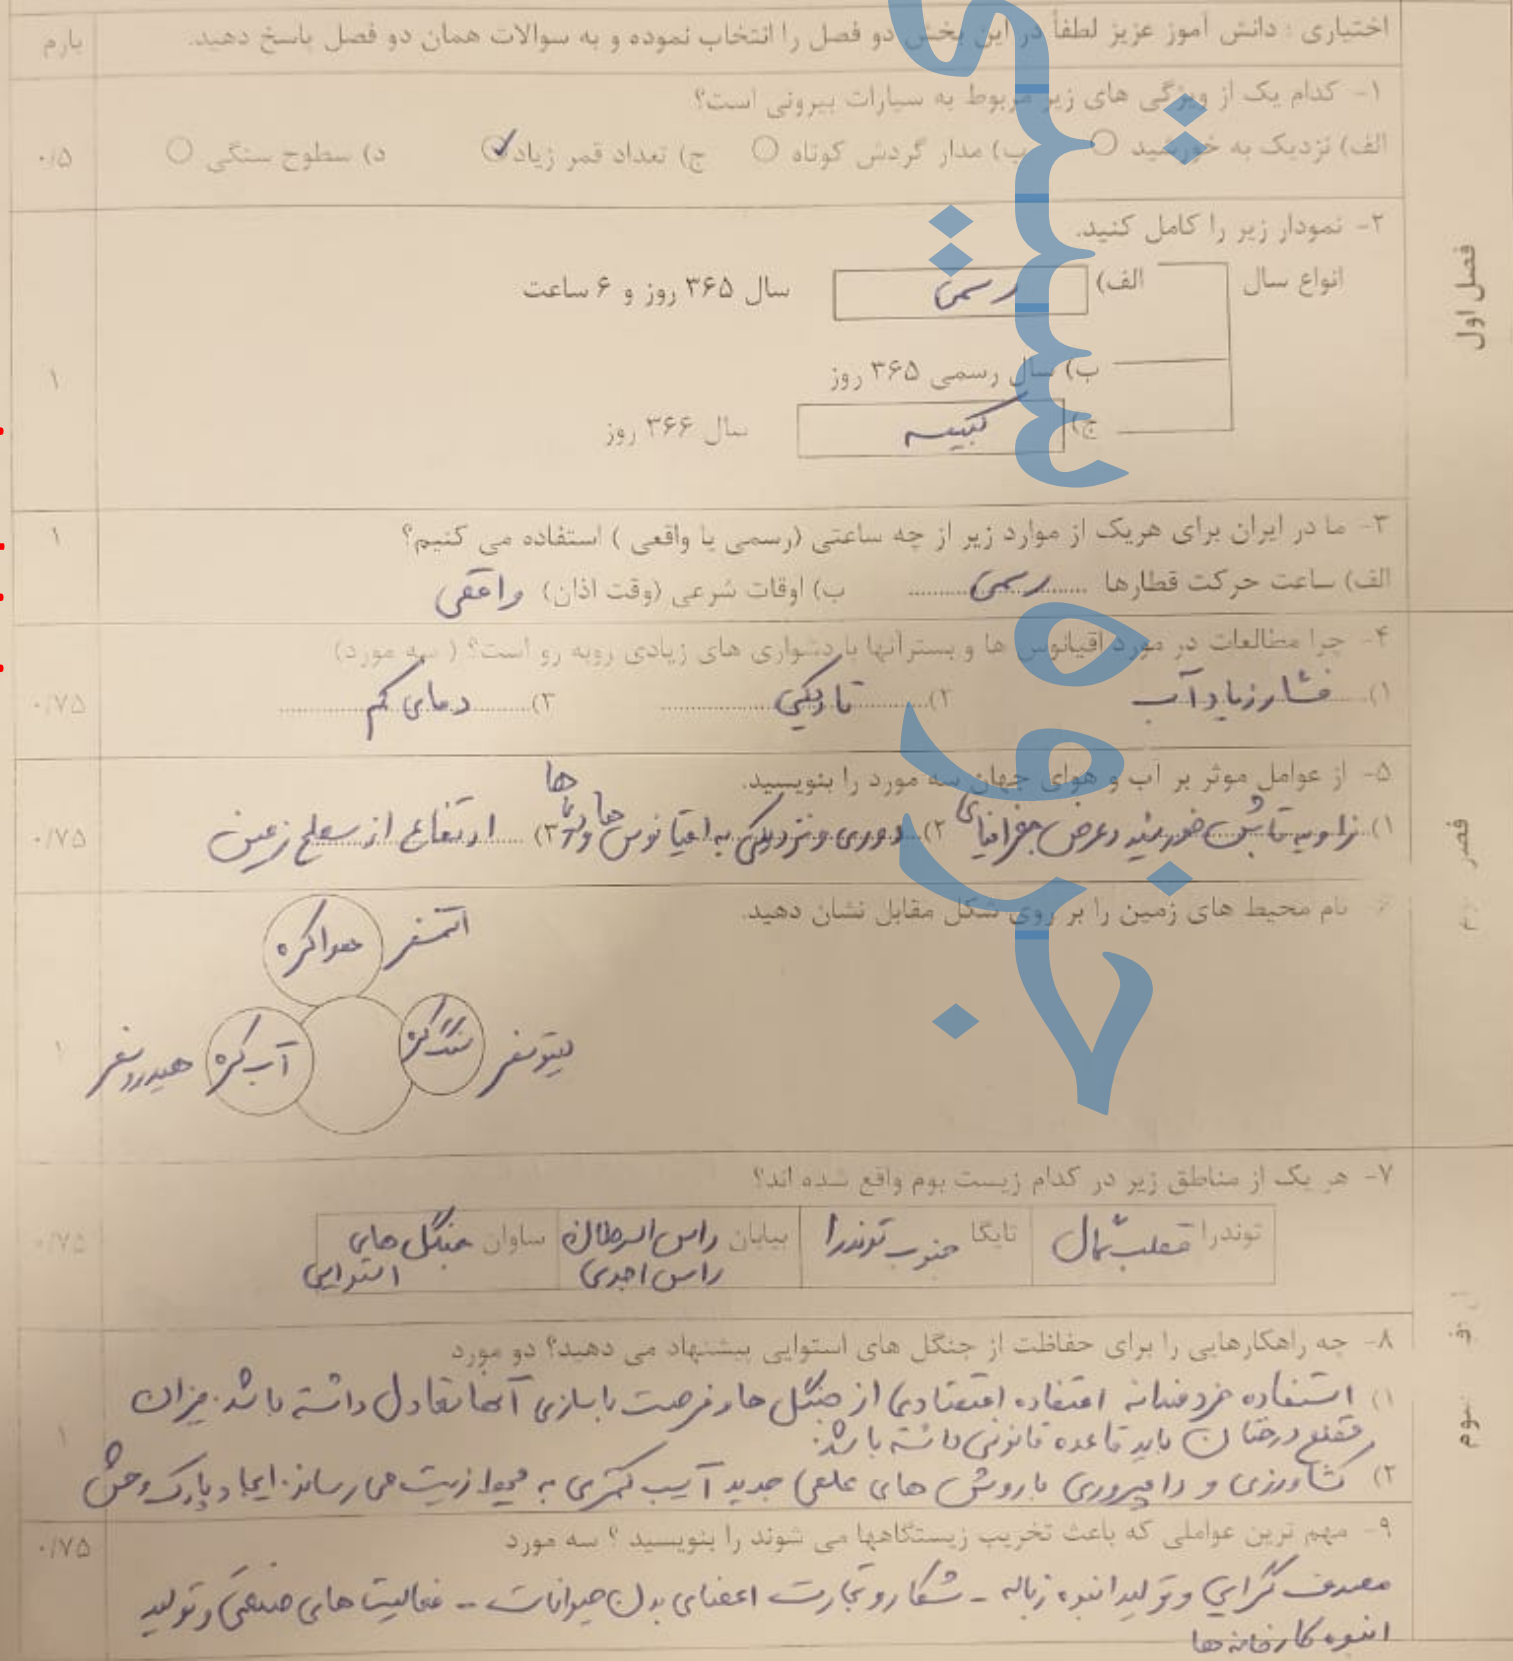 اختیاری : دانش آموز عزیز لطفاً در این بخش دو فصل را انتخاب نموده و به سوالات همان دو فصل پاسخ دهید.
بارم
فصل اول
۱- کدام یک از ویژگی های زیر مربوط به سیارات بیرونی است؟
الف) نزدیک به خورشید ب) مدار گردش کوتاه ج) تعداد قمر زیاد ✓ د) سطوح سنگی
۰/۵
۲- نمودار زیر را کامل کنید.
انواع سال الف) رسمی سال ۳۶۵ روز و ۶ ساعت
ب) سال رسمی ۳۶۵ روز
۱
ج) کبیسه سال ۳۶۶ روز
۳- ما در ایران برای هریک از موارد زیر از چه ساعتی (رسمی یا واقعی ) استفاده می کنیم؟
۱
الف) ساعت حرکت قطارها رسمی ب) اوقات شرعی (وقت اذان) واقعی
۴- چرا مطالعات در مورد اقیانوس ها و بسترآنها با دشواری های زیادی روبه رو است؟ ( سه مورد)
۱) فشار زیاد آب ۲) تاریکی ۳) دمای کم
۰/۷۵
۵- از عوامل موثر بر آب و هوای جهان سه مورد را بنویسید.
۱) زاویه تابش خورشید و عرض جغرافیای ۲) دوری و نزدیکی به اقیانوس ها و دریا ها ۳) ارتفاع از سطح زمین
۰/۷۵
نام محیط های زمین را بر روی شکل مقابل نشان دهید.
هواکره اتمسفر
سنگ کره لیتوسفر
آب کره هیدروسفر
۱
۷- هر یک از مناطق زیر در کدام زیست بوم واقع شده اند؟
توندرا قطب شمال تایگا جنوب توندرا بیابان راس السرطان راس الجدی ساوان جنگل های استوایی
۰/۷۵
سوم
۸- چه راهکارهایی را برای حفاظت از جنگل های استوایی پیشنهاد می دهید؟ دو مورد
۱) استفاده خردمندانه از جنگل ها و فرصت بازسازی آنها تعادل داشته باشد. میزان
قطع درختان باید قاعده قانونی داشته باشد.
۱
۲) کشاورزی و دامپروری با روش های علمی جدید آسیب کمتری به محیط زیست می رساند. ایجاد پارک وحش
۹- مهم ترین عواملی که باعث تخریب زیستگاهها می شوند را بنویسید ؟ سه مورد
۰/۷۵
مصرف گرایی و تولید انبوه زباله - شکار و تجارت اعضای بدن حیوانات - فعالیت های صنعتی و تولید
انبوه کارخانه ها